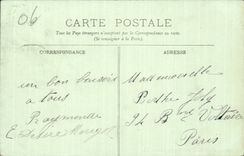 06
CARTE POSTALE
Tous les Pays étrangers n'acceptent pas la Correspondance au recto.
(Se renseigner à la Poste).
CORRESPONDANCE
ADRESSE
un bon baiser
à tous
Raymonde
Mademoiselle
Berthe
14 B
Paris